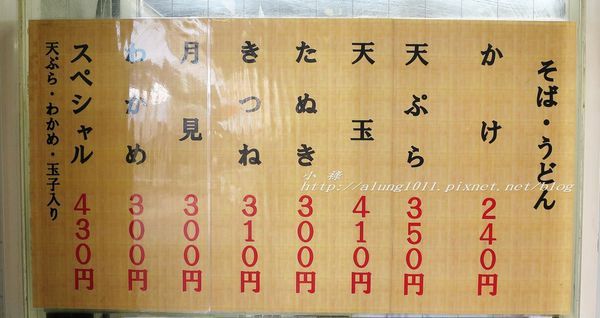 そば・うどん
かけ 240円
天ぷら 350円
天玉 410円
たぬき 300円
きつね 310円
月見 300円
わかめ 300円
スペシャル 430円
天ぷら・わかめ・玉子入り
http://alung1011.pixnet.net/blog